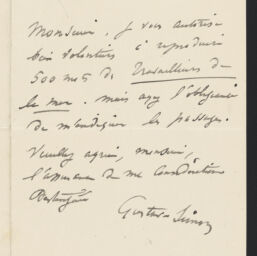 Monsieur, je vous autorise
bien volontiers à reproduire
500 mots de Travailleurs de
la mer. mais ayez l'obligeance
de m'indiquer les passages.
Veuillez agréer, monsieur,
l'assurance de ma considération
distinguée
Gustave Simon